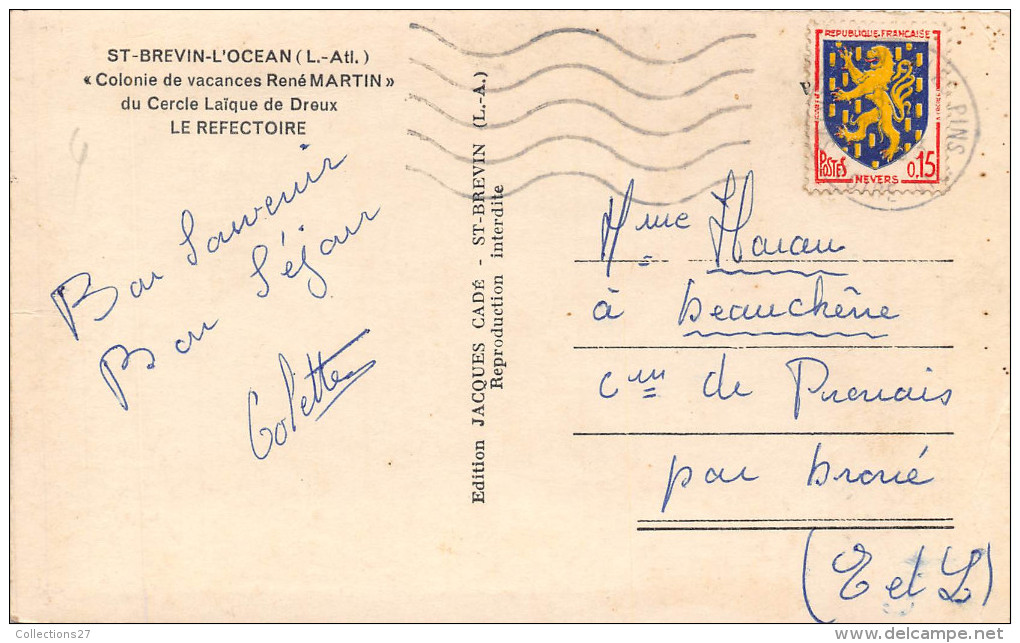 ST-BREVIN-L'OCEAN (L.-Atl.)
« Colonie de vacances René MARTIN »
du Cercle Laïque de Dreux
LE REFECTOIRE
Bon Souvenir
Bon Séjour
Colette
Edition JACQUES CADÉ - ST-BREVIN (L.-A.)
Reproduction interdite
REPUBLIQUE FRANÇAISE
POSTES
NEVERS
0,15
PINS
Mme
à Beauchêne
cne de Prouais
par Broué
(E et L)
Collections27
delcampe.net